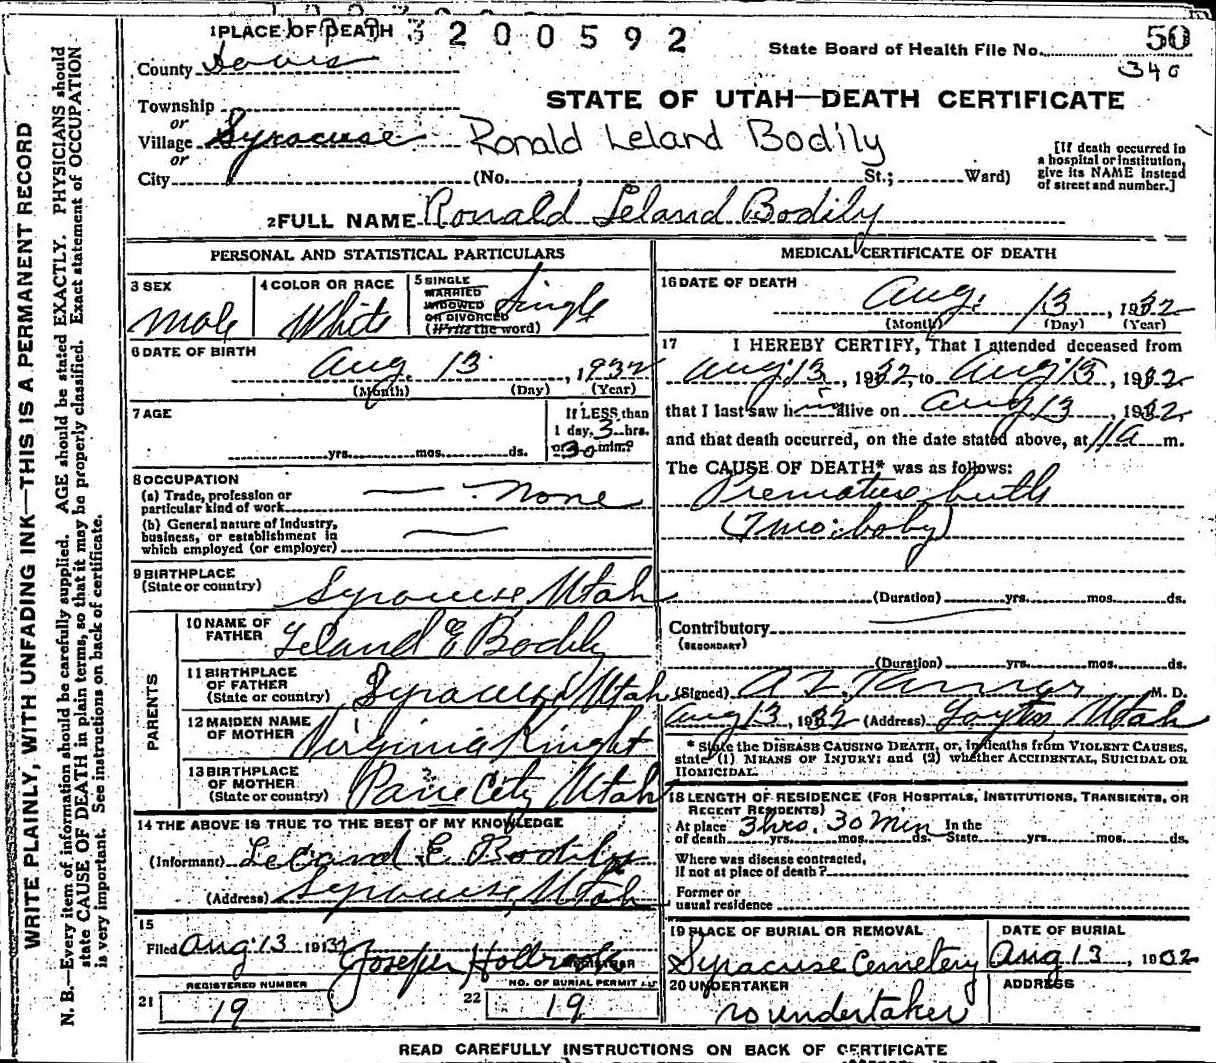 1 PLACE OF DEATH 3200592
State Board of Health File No. 50
340
County Davis
STATE OF UTAH—DEATH CERTIFICATE
Township
or
Village Syracuse Ronald Leland Bodily
or
City (No. , St.; Ward)
[If death occurred in
a hospital or institution,
give its NAME instead
of street and number.]
2 FULL NAME Ronald Leland Bodily
PERSONAL AND STATISTICAL PARTICULARS
3 SEX
Male
4 COLOR OR RACE
White
5 SINGLE
MARRIED
WIDOWED
OR DIVORCED
(Write the word)
Single
6 DATE OF BIRTH
Aug. 13, 1932
(Month) (Day) (Year)
7 AGE
yrs. mos. ds.
If LESS than
1 day, 3 hrs.
or 30 min.?
8 OCCUPATION
(a) Trade, profession or
particular kind of work — None
(b) General nature of Industry,
business, or establishment in
which employed (or employer) —
9 BIRTHPLACE
(State or country) Syracuse, Utah
PARENTS
10 NAME OF
FATHER Leland E Bodily
11 BIRTHPLACE
OF FATHER
(State or country) Syracuse Utah
12 MAIDEN NAME
OF MOTHER Virginia Knight
13 BIRTHPLACE
OF MOTHER
(State or country) City Utah
14 THE ABOVE IS TRUE TO THE BEST OF MY KNOWLEDGE
(Informant) Leland E. Bodily
(Address) Syracuse, Utah
15
Filed Aug 13 1932 Joseph Holbrook
REGISTRAR
REGISTERED NUMBER
21 19
NO. OF BURIAL PERMIT
22 19
MEDICAL CERTIFICATE OF DEATH
16 DATE OF DEATH
Aug. 13, 1932
(Month) (Day) (Year)
17 I HEREBY CERTIFY, That I attended deceased from
Aug 13, 1932, to Aug 13, 1932
that I last saw him alive on Aug 13, 1932
and that death occurred, on the date stated above, at 11 A m.
The CAUSE OF DEATH* was as follows:
Premature birth
(7 mo. baby)
(Duration) yrs. mos. ds.
Contributory —
(SECONDARY)
(Duration) yrs. mos. ds.
(Signed) A Z. Tanner M. D.
Aug 13, 1932 (Address) Layton, Utah
* State the DISEASE CAUSING DEATH, or, in deaths from VIOLENT CAUSES,
state (1) MEANS OF INJURY; and (2) whether ACCIDENTAL, SUICIDAL OR
HOMICIDAL.
18 LENGTH OF RESIDENCE (FOR HOSPITALS, INSTITUTIONS, TRANSIENTS, OR
RECENT RESIDENTS)
At place 3 hrs. 30 Min In the
of death yrs. mos. ds. State yrs. mos. ds.
Where was disease contracted,
if not at place of death?
Former or
usual residence
19 PLACE OF BURIAL OR REMOVAL
Syracuse Cemetery
DATE OF BURIAL
Aug 13, 1932
20 UNDERTAKER
no undertaker
ADDRESS
READ CAREFULLY INSTRUCTIONS ON BACK OF CERTIFICATE
WRITE PLAINLY, WITH UNFADING INK—THIS IS A PERMANENT RECORD
N. B.—Every item of information should be carefully supplied. AGE should be stated EXACTLY. PHYSICIANS should
state CAUSE OF DEATH in plain terms, so that it may be properly classified. Exact statement of OCCUPATION
is very important. See instructions on back of certificate.